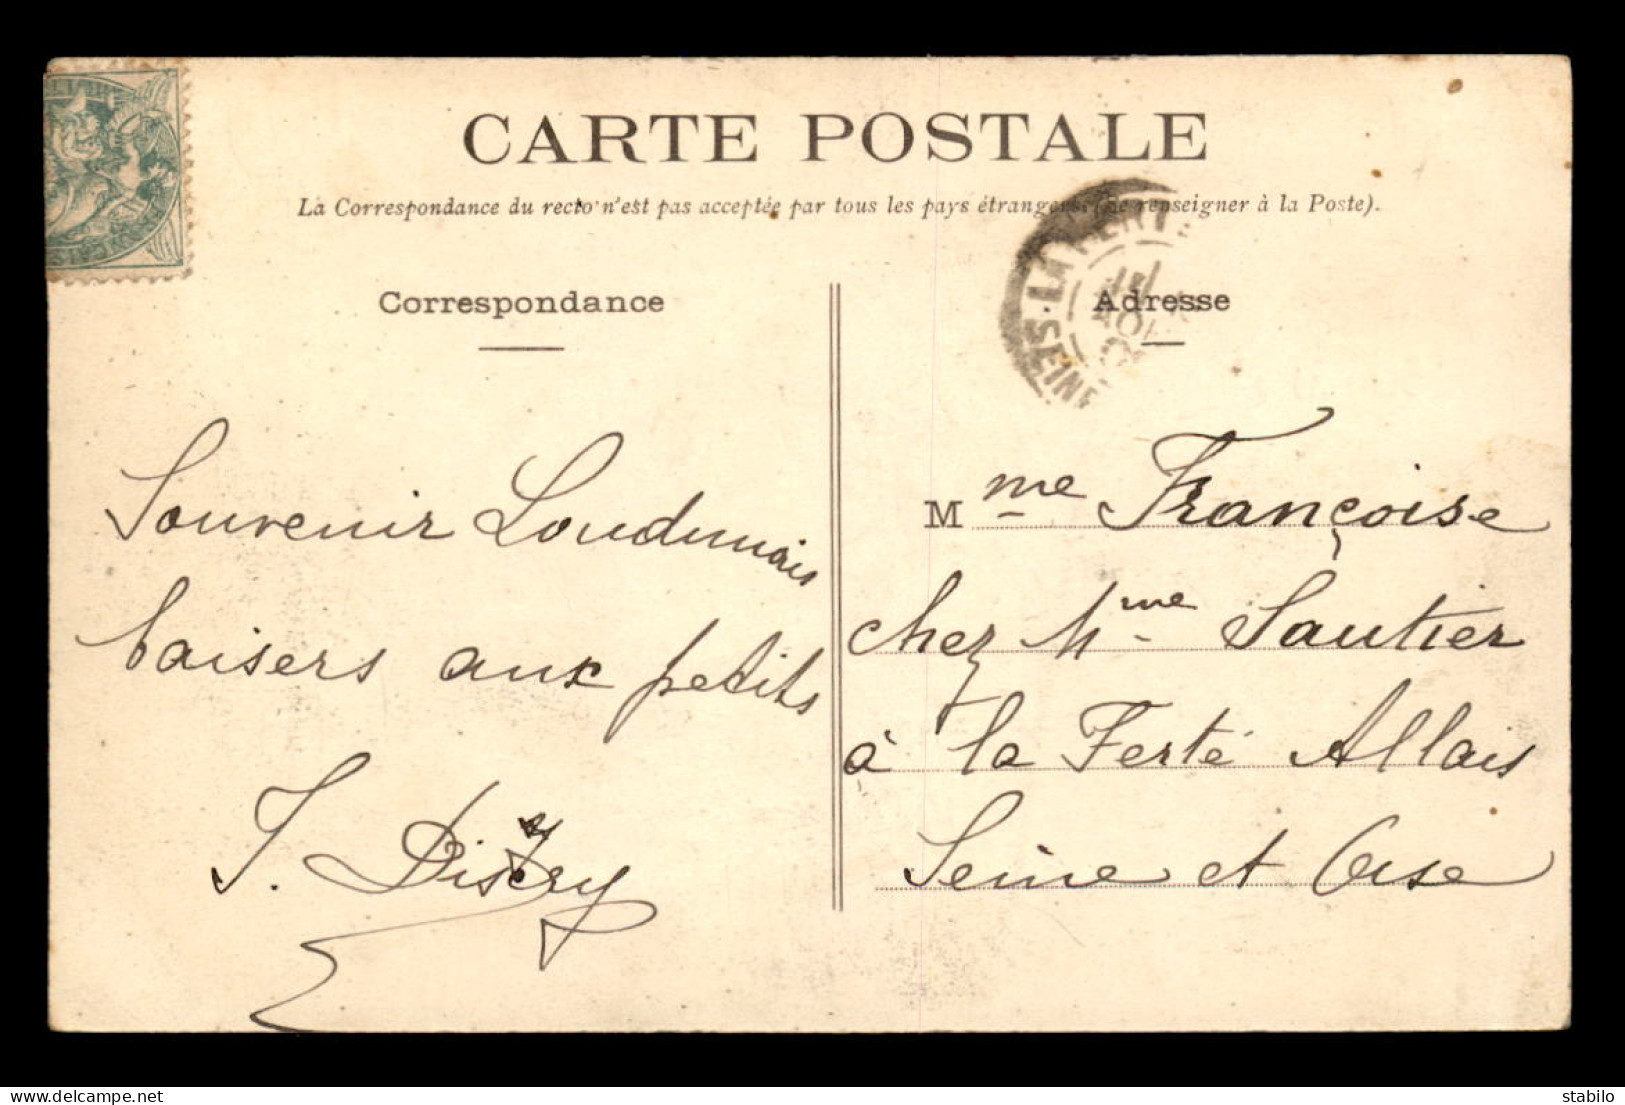 CARTE POSTALE
La Correspondance du recto n'est pas acceptée par tous les pays étrangers. (Se renseigner à la Poste).
Correspondance
Adresse
Souvenir Loudunais
baisers aux petits
J. Distry
Mme Françoise
chez Mme Sautier
à la Ferté Allais
Seine et Oise
delcampe.net
stabilo